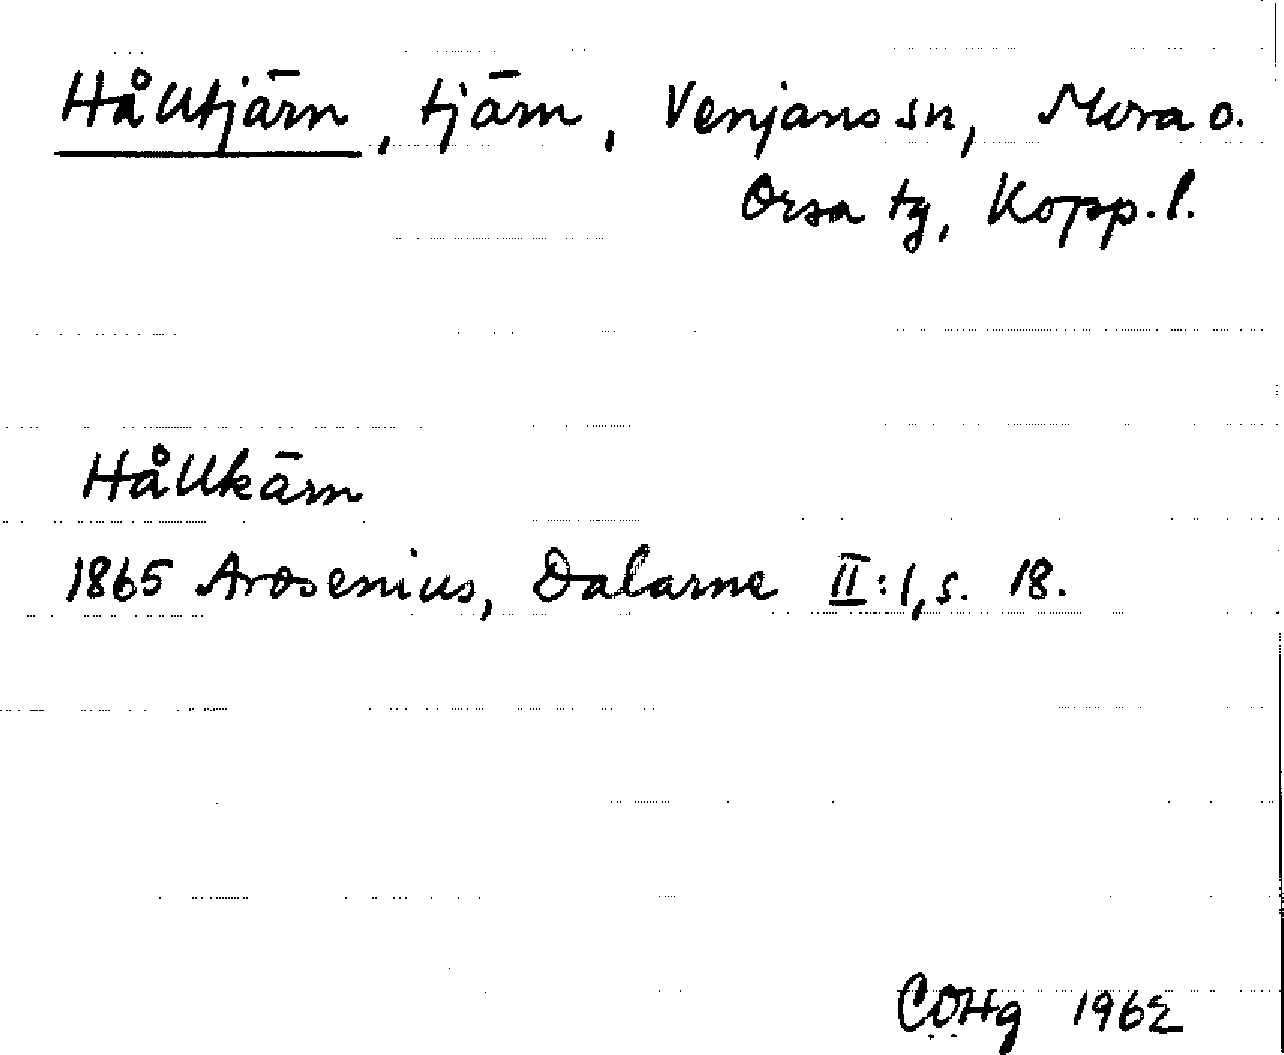 Hålltjärn, tjärn, Venjans sn, Mora o.
Orsa tg, Kopp. l.
Hållkärn
1865 Arosenius, Dalarne II:1, s. 18.
COHg 1962